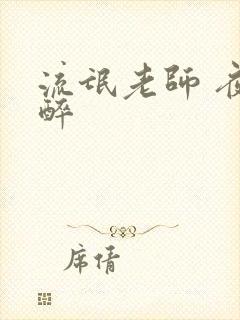 流氓老師 夜
醉
席倩